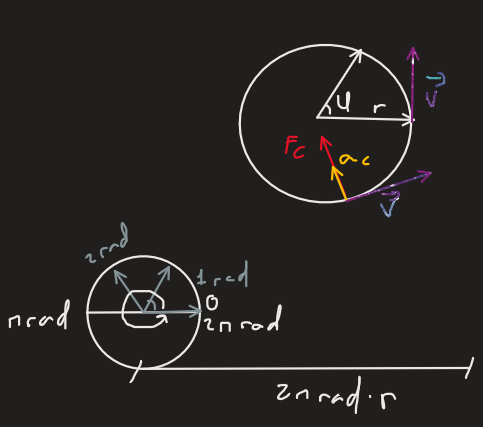 φ r
v
Fc ac
v
2rad
1rad
πrad
0
2πrad
2πrad·r